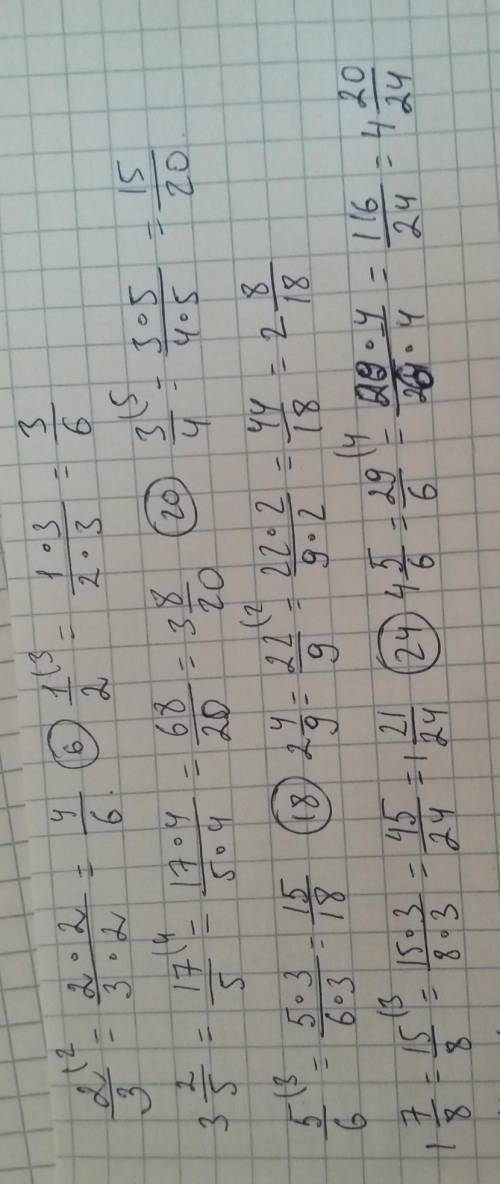 2/3 (2 = 2∘2/3∘2 = 4/6. ⑥ 1/2 (3 = 1∘3/2∘3 = 3/6
3 2/5 = 17/5 (4 = 17∘4/5∘4 = 68/20 = 3 8/20 ⑳ 3/4 (5 = 3∘5/4∘5 = 15/20.
5/6 (3 = 5∘3/6∘3 = 15/18 ⑱ 2 4/9 = 22/9 (2 = 22∘2/9∘2 = 44/18 = 2 8/18
1 7/8 = 15/8 (3 = 15∘3/8∘3 = 45/24 = 1 21/24 ㉔ 4 5/6 = 29/6 (4 = 29∘4/6∘4 = 116/24 = 4 20/24